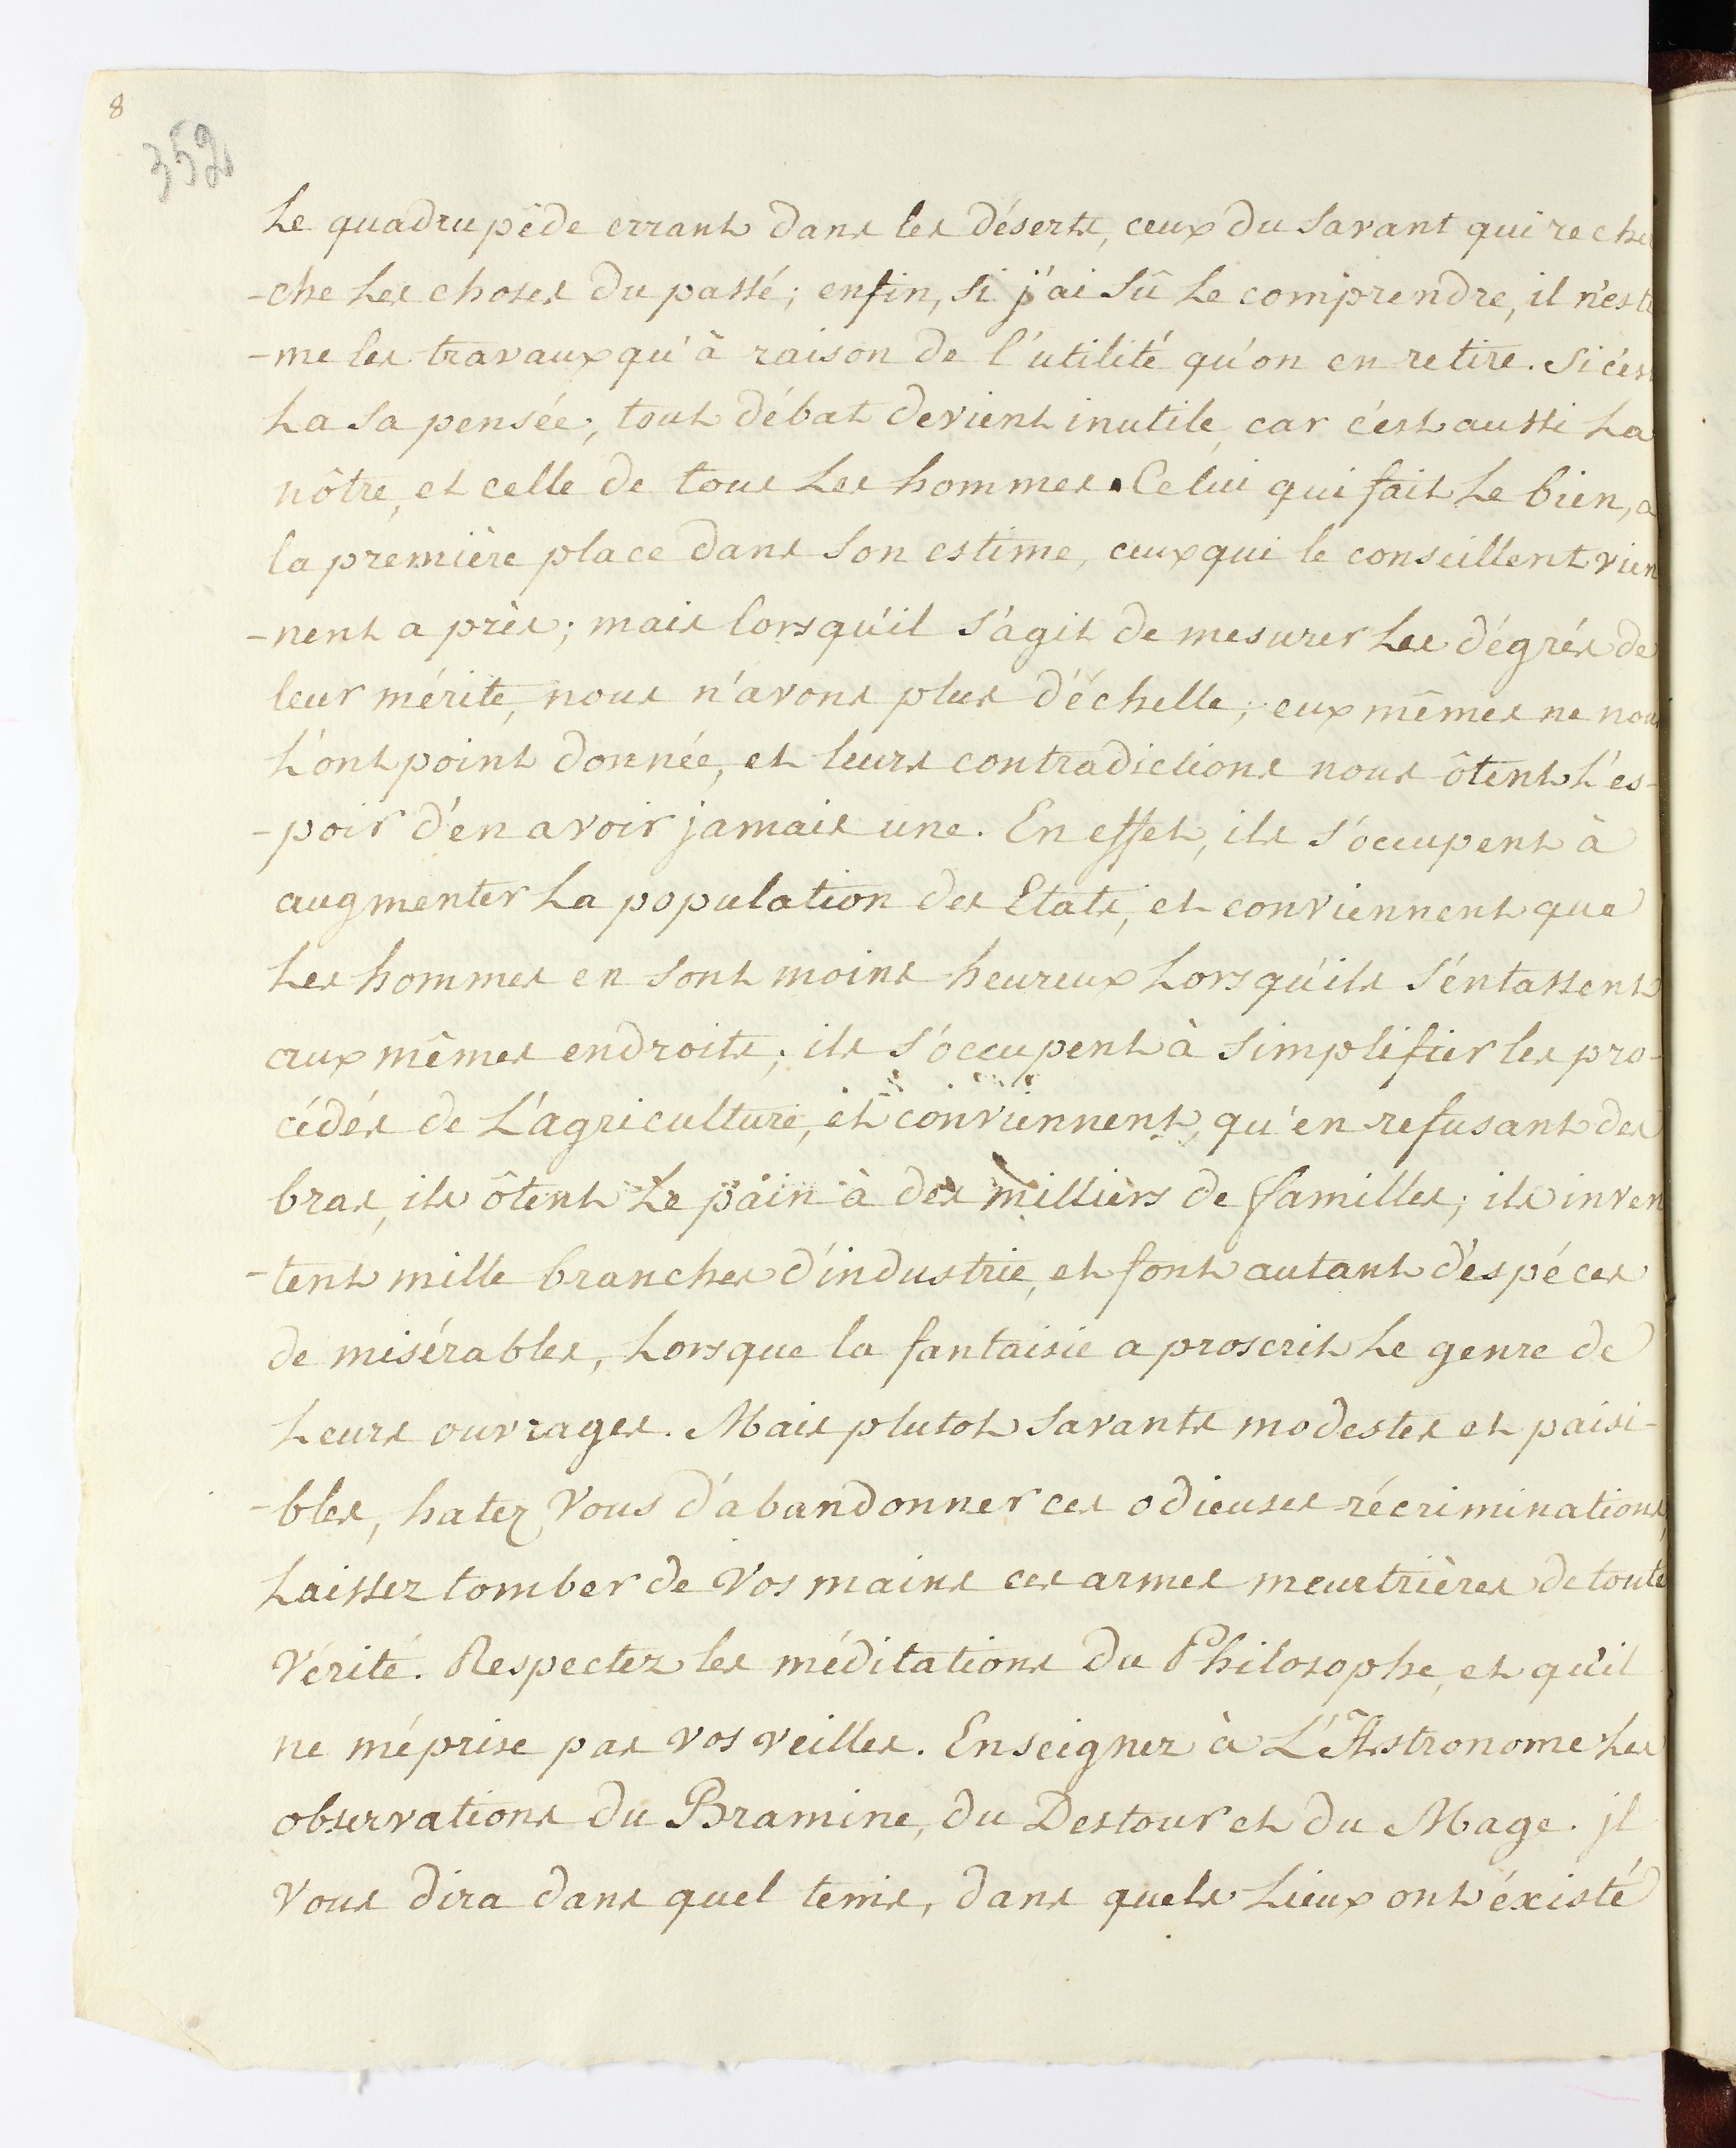 8
352
Le quadrupêde errant dans les déserts, ceux du Savant qui reche
-che Les choses du passé; enfin, Si j'ai Sû Le comprendre, il n'esti
-me les travaux qu'à raison de l'utilité qu'on en retire. Si c'est
La Sa pensée; tout débat devient inutile, car c'est aussi La
nôtre, et celle de tous Les hommes. Celui qui fait Le bien, a
la première place dans Son estime, ceux qui le conseillent vien
-nent après; mais lorsqu'il S'agit de mesurer Les dégrés de
leur mérite, nous n'avons plus d'échelle; eux mêmes ne nous
L'ont point donnée, et leurs contradictions nous ôtent L'es-
-poir d'en avoir jamais une. En effet, ils S'occupent à
augmenter La population des Etats, et conviennent que
Les hommes en Sont moins heureux Lorsqu'ils S'entassent
aux mêmes endroits; ils S'occupent à Simplifier les pro-
cédés de L'agriculture, et conviennent, qu'en refusant des
bras, ils ôtent Le pain à des milliers de familles; ils inven
-tent mille branches d'industrie, et font autant d'espéces
de misérables, Lorsque la fantaisie a proscrit Le genre de
Leurs ouvrages. Mais plutot Savants modestes et paisi-
-bles, hatez Vous d'abandonner ces odieuses récriminations,
Laissez tomber de Vos mains ces armes meurtrières de toute
Vérité. Respectez les méditations du Philosophe, et qu'il
ne méprise pas vos veilles. Enseignez à L'Astronome Les
observations du Bramine, du Destour et du Mage. jl
Vous dira dans quel tems, dans quels Lieux ont éxisté